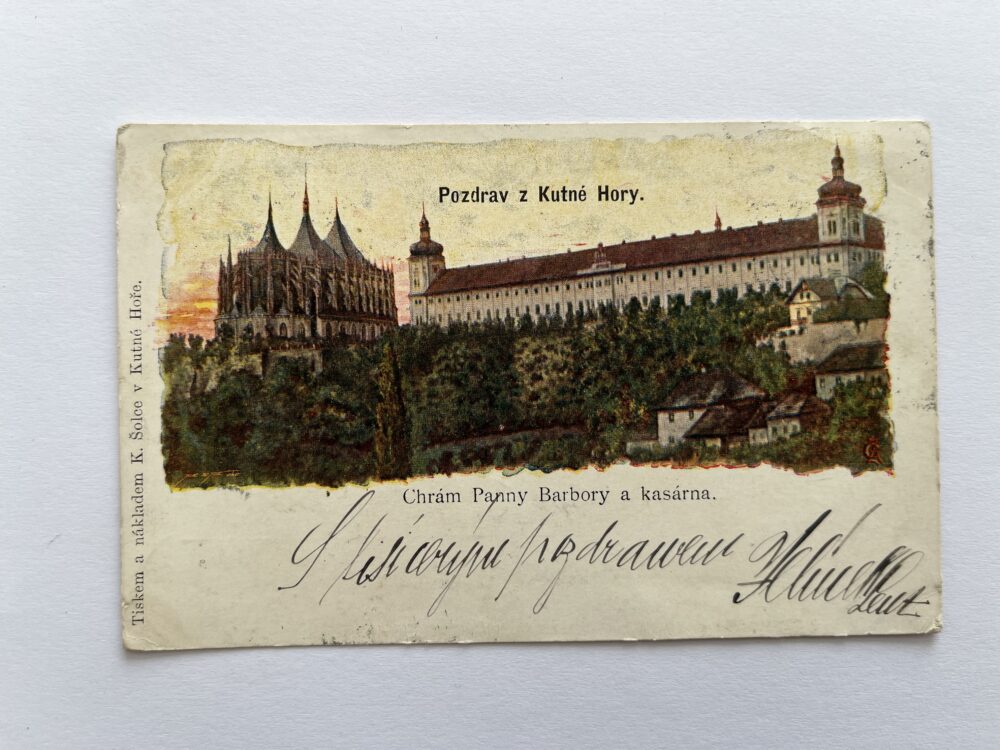 Pozdrav z Kutné Hory.
Tiskem a nákladem K. Šolce v Kutné Hoře.
Chrám Panny Barbory a kasárna.
S tisícerým pozdravem